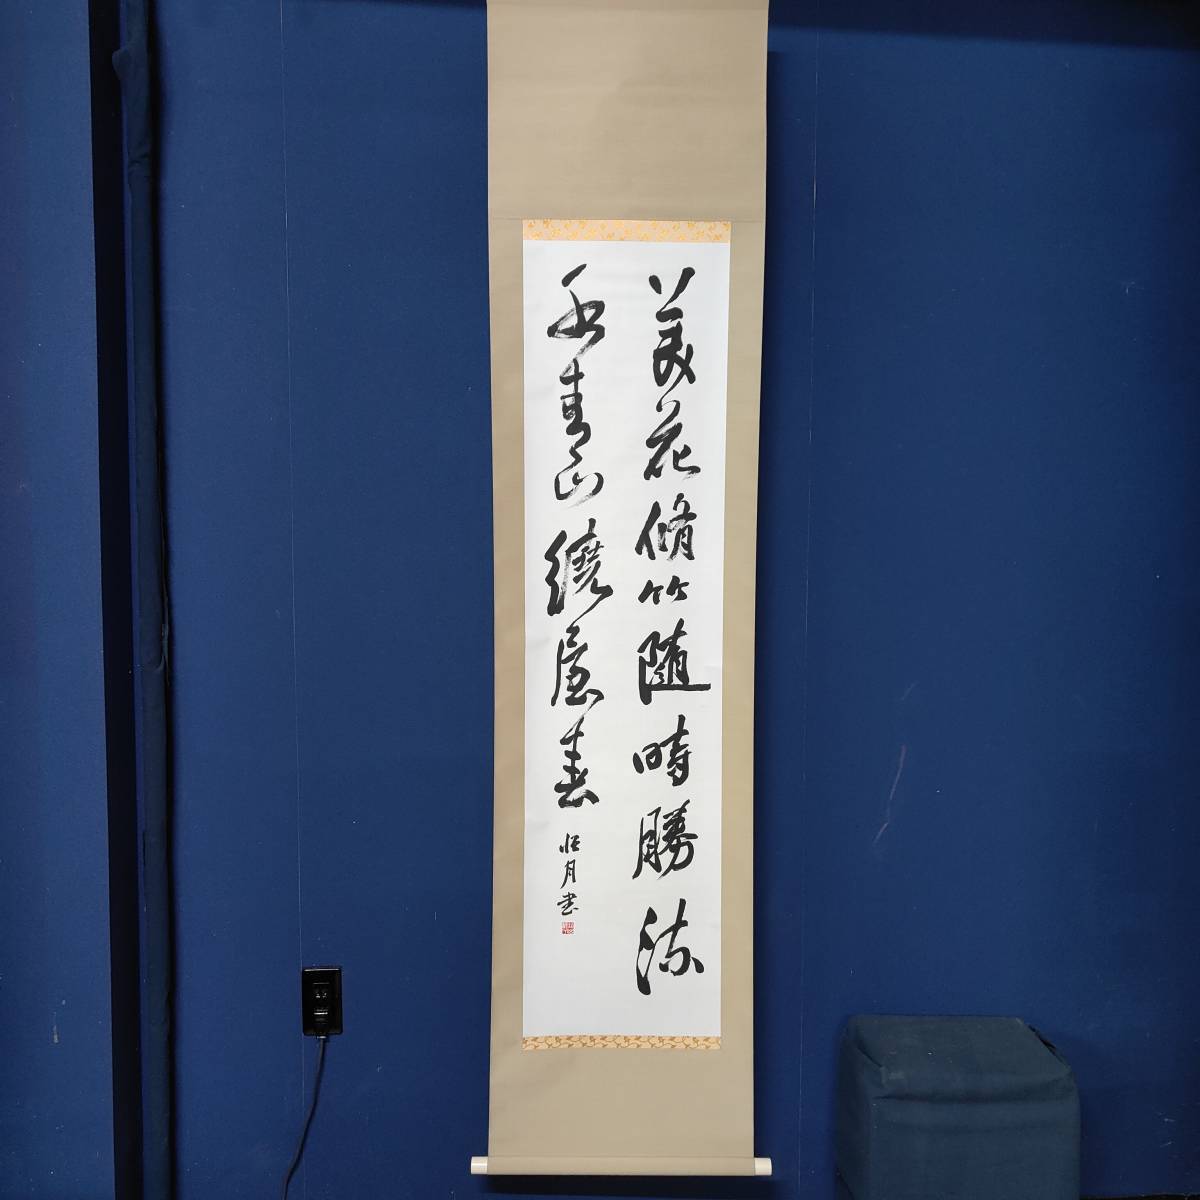 美花脩竹随時勝流
水青山繞屋春
恒月書